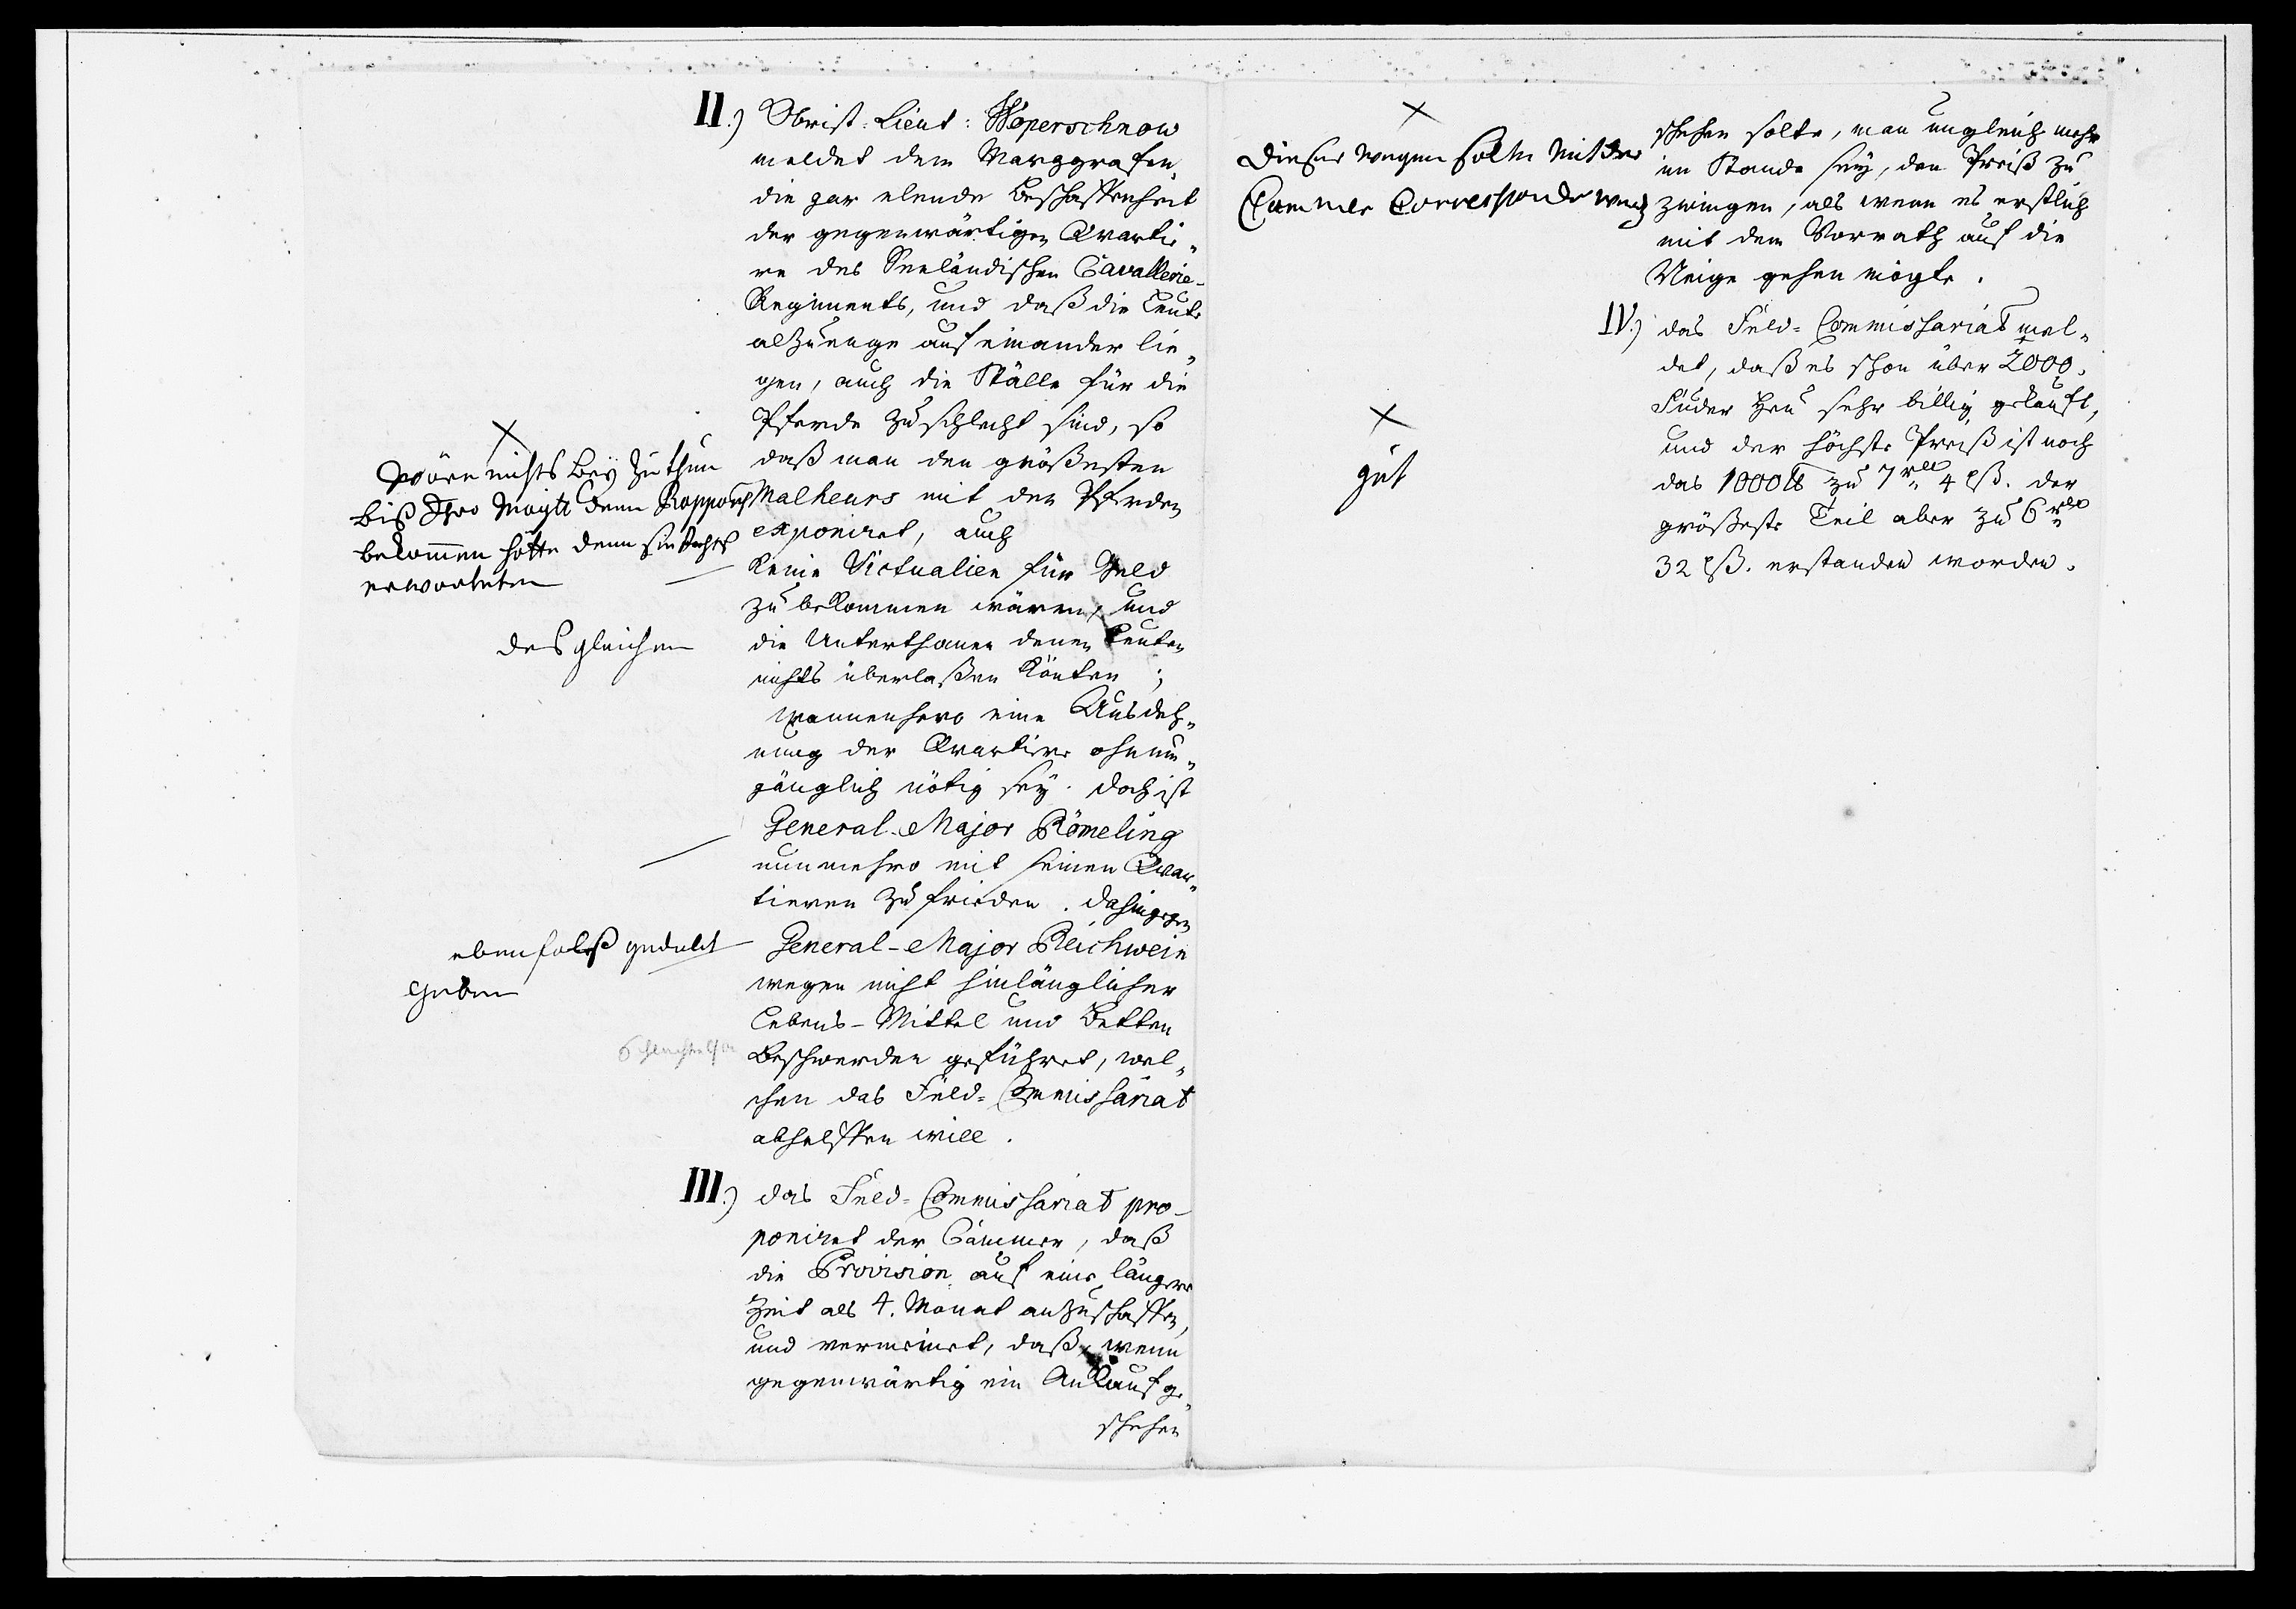 II.) Obrist-Lieut: Woperschnow
meldet dem Marggrafen,
die gar elende Beschaffenheit
der gegenwärtigen Qvartie„
re des Seeländischen Cavallerie-
Regiments, und daß die Leute
alzuenge auf einander lie„
gen, auch die Ställe für die
Pferde zu schlecht sind, so
daß man den größesten
Malheurs mit den Pferden
exponiret, auch
keine Victualien für Geld
zu bekommen wären, und
die Unterthanen denen Leuten
nichts überlaßen könten ;
wannenhero eine Ausdeh„
nung der Qvartiere ohnum„
gänglich nötig sey. doch ist
General-Major Römeling
nunmehro mit seinen Qvar„
tieren zufrieden. dahingegen
General-Major Reichwein
wegen nicht hinlänglicher
Lebens-Mittel und Betten
Beschwerden geführet, wel„
chen das Feld-Commissariat
abhelffen will.
X
wäre nichts bey zu thun
biß Ihro Maytt denn Rapport
bekommen hätte denn sie
erwarteten
desgleichen
ebenfalß gedult
geben
III.) das Feld-Commissariat pro-
poniret der Cammer, daß
die Provision auf eine längere
Zeit als 4. Monat anzuschaffen,
und vermeinet, daß, wenn
gegenwärtig ein Ankauf ge„
schehen
schehen solte, man ungleich mehr
im Stande sey, den Preiß zu
zwingen, als wenn es erstlich
mit dem Vorrath auf die
Neige gehen mögte.
X
dieser wegen solte mit der
Cammer Correspondir werd
IV.) das Feld-Commissariat mel„
det, daß es schon über 2000.
Fuder Heu sehr billig gekauft,
und der höchste Preiß ist noch
das 1000 ℔ zu 7 rdl. 4 ßl. der
größeste Teil aber zu 6 rdl.
32 ßl. erstanden worden.
X
gut